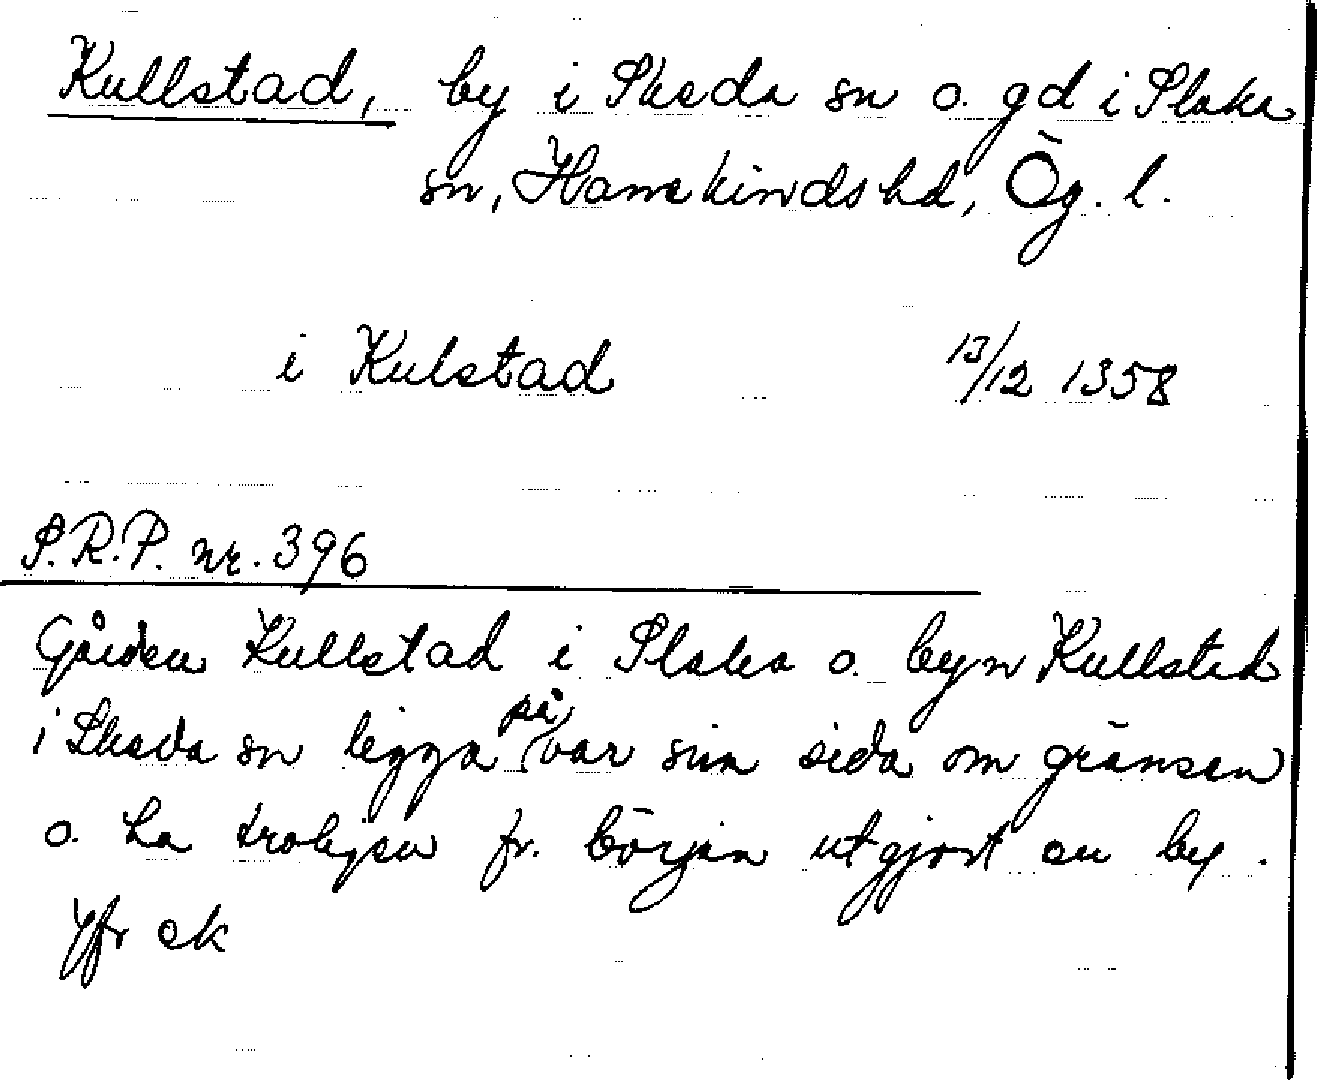 Kullstad, by i Skeda sn o. gd i Slaka
sn, Hanekinds hd, Ög. l.
i Kulstad 13/12 1358
S.R.P. nr. 396
Gården Kullstad i Slaka o. byn Kullstad
i Skeda sn ligga på var sin sida om gränsen
o. ha troligen fr. början utgjort en by.
Jfr ek